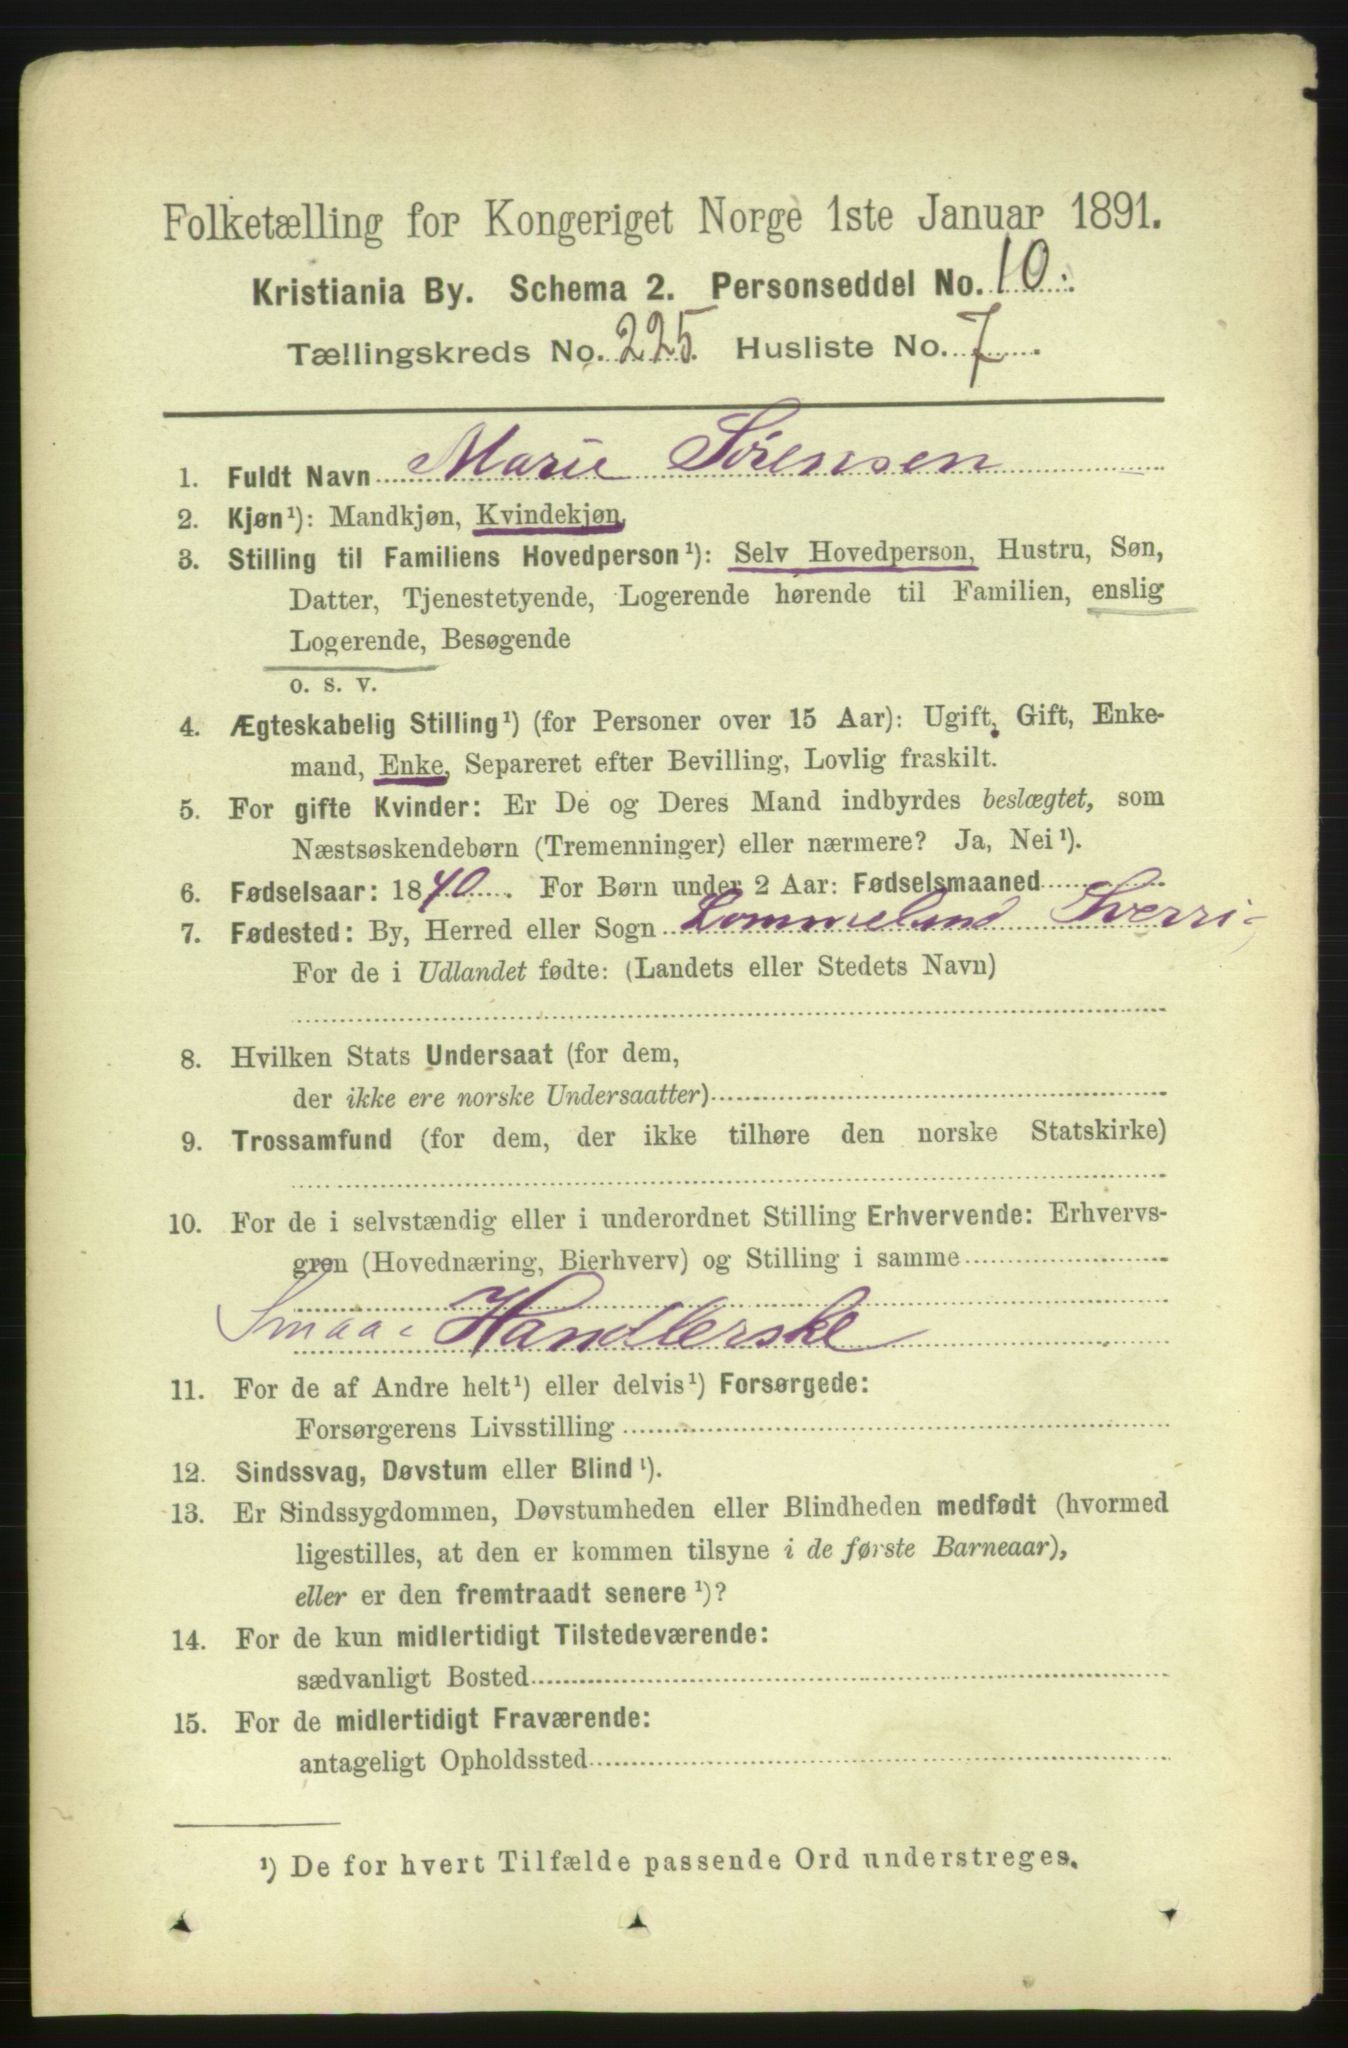 Folketælling for Kongeriget Norge 1ste Januar 1891.
Kristiania By. Schema 2. Personseddel No. 10.
Tællingskreds No. 225. Husliste No. 7.
1. Fuldt Navn Marie Sörensen
2. Kjøn¹): Mandkjøn, Kvindekjøn,
3. Stilling til Familiens Hovedperson¹): Selv Hovedperson, Hustru, Søn,
Datter, Tjenestetyende, Logerende hørende til Familien, enslig
Logerende, Besøgende
o. s. v.
4. Ægteskabelig Stilling¹) (for Personer over 15 Aar): Ugift, Gift, Enke-
mand, Enke, Separeret efter Bevilling, Lovlig fraskilt.
5. For gifte Kvinder: Er De og Deres Mand indbyrdes beslægtet, som
Næstsøskendebørn (Tremenninger) eller nærmere? Ja, Nei¹).
6. Fødselsaar: 1840. For Børn under 2 Aar: Fødselsmaaned
7. Fødested: By, Herred eller Sogn Lommeland Sverri-
For de i Udlandet fødte: (Landets eller Stedets Navn)
8. Hvilken Stats Undersaat (for dem,
der ikke ere norske Undersaatter)
9. Trossamfund (for dem, der ikke tilhøre den norske Statskirke)
10. For de i selvstændig eller i underordnet Stilling Erhvervende: Erhvervs-
gren (Hovednæring, Bierhverv) og Stilling i samme
Smaa- Handlerske
11. For de af Andre helt¹) eller delvis¹) Forsørgede:
Forsørgerens Livsstilling
12. Sindssvag, Døvstum eller Blind¹).
13. Er Sindssygdommen, Døvstumheden eller Blindheden medfødt (hvormed
ligestilles, at den er kommen tilsyne i de første Barneaar),
eller er den fremtraadt senere¹)?
14. For de kun midlertidigt Tilstedeværende:
sædvanligt Bosted
15. For de midlertidigt Fraværende:
antageligt Opholdssted
¹) De for hvert Tilfælde passende Ord understreges.